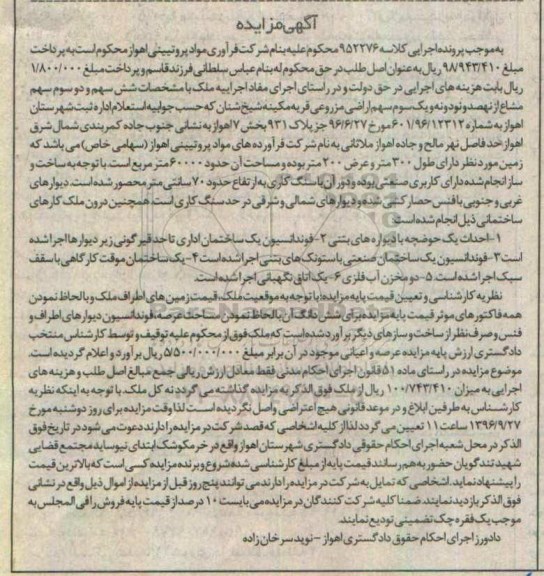 آگهی مزایده
به موجب پرونده اجرایی کلاسه ۹۵۲۲۷۶ محکوم علیه بنام شرکت فرآوری مواد پروتیینی اهواز محکوم است به پرداخت
مبلغ ۹۸/۹۴۳/۴۱۰ ریال به عنوان اصل طلب در حق محکوم له بنام عباس سلطانی فرزند قاسم و پرداخت مبلغ ۱/۸۰۰/۰۰۰
ریال بابت هزینه های اجرایی در حق دولت و در راستای اجرای مفاد اجراییه ملک با مشخصات شش سهم و دو سوم سهم
مشاع از نهصد و نود و نه و یک سوم سهم اراضی مزروعی قریه مکینه شیخ شنان که حسب جوابیه استعلام اداره ثبت شهرستان
اهواز به شماره ۶۰۱/۹۶/۱۲۳۱۲ مورخ ۹۶/۶/۲۷ جز پلاک ۹۳۱ بخش ۷ اهواز به نشانی جنوب جاده کمربندی شمال شرق
اهواز حد فاصل نهر مالح و جاده اهواز ملاثانی به نام شرکت فرآورده های مواد پروتیینی اهواز (سهامی خاص) می باشد که
زمین مورد نظر دارای طول ۳۰۰ متر و عرض ۲۰۰ متر بوده و مساحت آن حدود ۶۰۰۰۰ متر مربع است. با توجه به ساخت و
ساز انجام شده دارای کاربری صنعتی بوده و دور آن با سنگ کاری به ارتفاع حدود ۷۰ سانتی متر محصور شده است. دیوارهای
غربی و جنوبی با فنس حصار کشی شده و دیوارهای شمالی و شرقی در حد سنگ کاری است. همچنین درون ملک کارهای
ساختمانی ذیل انجام شده است:
۱-احداث یک حوضچه با دیواره های بتنی ۲-فوندانسیون یک ساختمان اداری تا حد قیر گونی زیر دیوارها اجرا شده
است ۳-فوندانسیون یک ساختمان صنعتی با ستونک های بتنی اجرا شده است ۴-یک ساختمان موقت کارگاهی با سقف
سبک اجرا شده است. ۵-دو مخزن آب فلزی ۶-یک اتاق نگهبانی اجرا شده است.
نظریه کارشناسی و تعیین قیمت پایه مزایده: با توجه به موقعیت ملک، قیمت زمین های اطراف ملک و بالحاظ نمودن
همه فاکتورهای موثر قیمت پایه مزایده برای شش دانگ آن بالحاظ نمودن مساحت عرصه، فوندانسیون دیوارهای اطراف و
فنس و صرف نظر از ساخت و سازهای دیگر برآورد شده است که ملک فوق از محکوم علیه توقیف و توسط کارشناس منتخب
دادگستری ارزش پایه مزایده عرصه و اعیانی موجود در آن برابر مبلغ ۵/۵۰۰/۰۰۰/۰۰۰ ریال برآورد و اعلام گردیده است.
موضوع مزایده در راستای ماده ۵۱ قانون اجرای احکام مدنی فقط معادل ارزش ریالی جمع مبالغ اصل طلب و هزینه های
اجرایی به میزان ۱۰۰/۷۴۳/۴۱۰ ریال از ملک فوق الذکر به مزایده گذاشته می گردد نه کل ملک. با توجه به اینکه نظریه
کارشناس به طرفین ابلاغ و در موعد قانونی هیچ اعتراضی واصل نگردیده است. لذا وقت مزایده برای روز دوشنبه مورخ
۱۳۹۶/۹/۲۷ ساعت ۱۱ تعیین می گردد لذا از کلیه اشخاصی که قصد شرکت در مزایده را دارند دعوت می شود در تاریخ فوق
الذکر در محل شعبه اجرای احکام حقوقی دادگستری شهرستان اهواز واقع در خرمکوشک ابتدای نیوساید مجتمع قضایی
شهید تندگویان حضور به هم رسانند قیمت پایه از مبلغ کارشناسی شده شروع و برنده مزایده کسی است که بالاترین قیمت
را پیشنهاد نماید. اشخاصی که تمایل به شرکت در مزایده را دارند می توانند پنج روز قبل از مزایده از اموال ذیل واقع در نشانی
فوق الذکر بازدید نمایند. ضمنا کلیه شرکت کنندگان در مزایده می بایست ۱۰ درصد از قیمت پایه فروش را فی المجلس به
موجب یک فقره چک تضمینی تودیع نمایند.
دادورز اجرای احکام حقوق دادگستری اهواز - نوید سرخان زاده